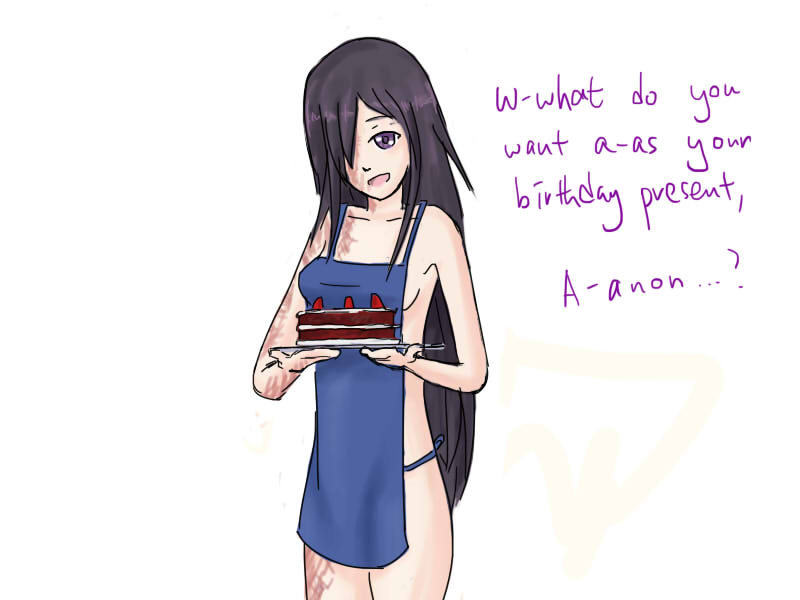 W-what do you
want a-as your
birthday present,
A-anon...?